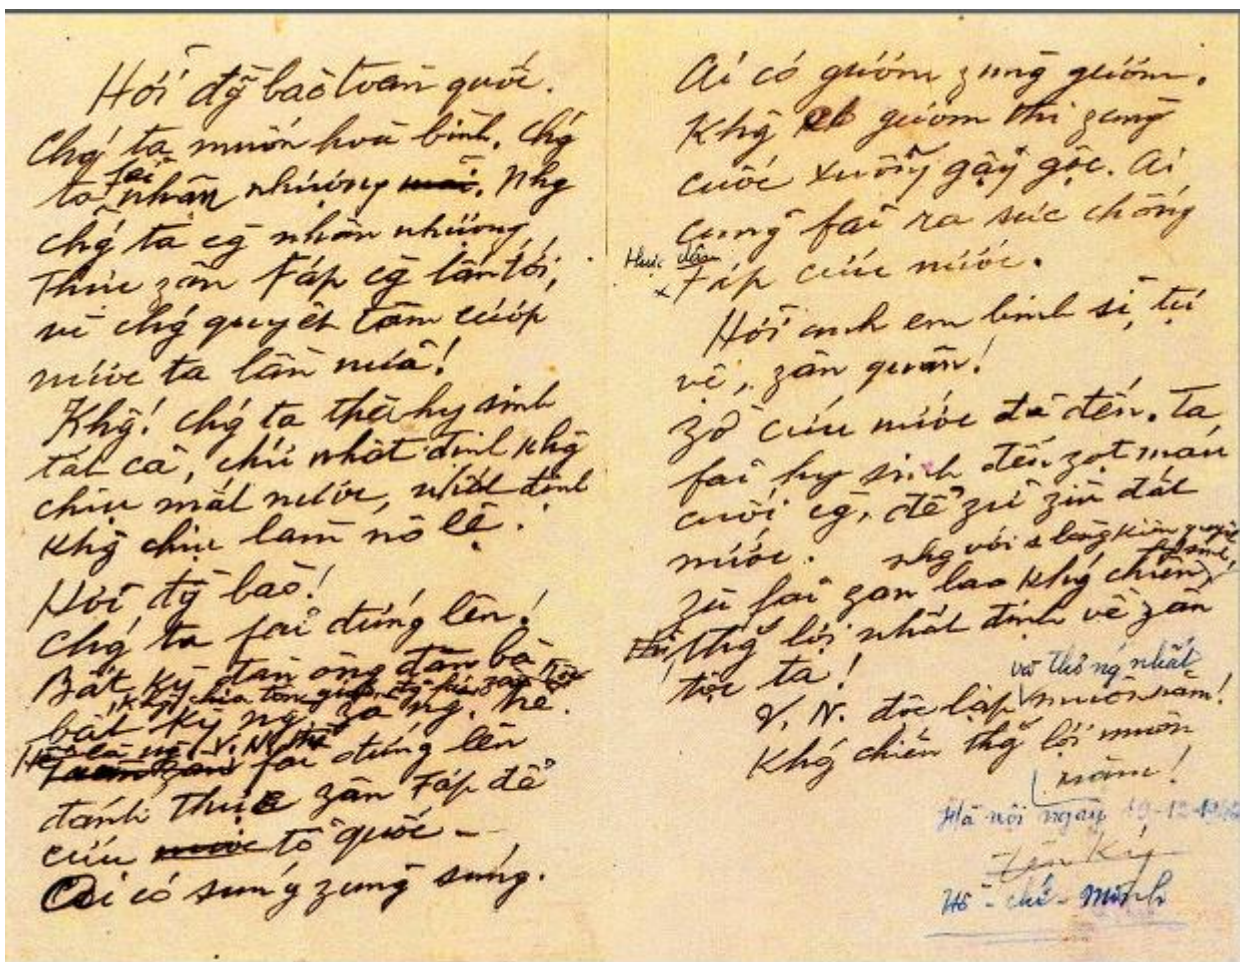 Hỡi đg̃ bào toàn quốc.
Chǵ ta muốn hoà bình, chǵ
ta fải nhân nhượng mãi. Nhg
chǵ ta cg̀ nhân nhượng,
Thực zân Fáp cg̀ lấn tới,
vì chǵ quyết tâm cướp
nước ta lần nữa!
Khg̃! chǵ ta thà hy sinh
tất cả, chứ nhất định khg̃
chịu mất nước, nhất định
khg̃ chịu làm nô lệ.
Hỡi đg̀ bào!
Chǵ ta fải đứng lên!
Bất kỳ đàn ông đàn bà
bất kỳ ng. zà ng. trẻ.
khg̃ chia tôn záo, đg̉ fái, zân tộc
Hễ là ng. V.N. thì
fải đứng lên
đánh thực zân Fáp để
cứu nước tổ quốc –
Ai có súng zùng súng.
Ai có gươm zùng gươm.
Khg̃ có gươm thì zùng
cuốc xuổng gậy gộc. Ai
cũng fải ra sức chống
thực dân
x Fáp cứu nước.
Hỡi anh em binh sĩ, tự
vệ, zân quân!
Zờ cứu nước đã đến. Ta
fải hy sinh đến zọt máu
cuối cg̀, để zữ zìn đất
nước.
Zù fải zan lao khǵ chiến,
nhg với 1 lòng kiên quyết
hy sinh,
thg̃ lợi nhất định về zân
tộc ta!
và thống nhất
V. N. độc lập muôn năm!
Khǵ chiến thg̃ lợi muôn
năm!
Hà nội ngày 19-12-1946
Hồ-chí-Minh